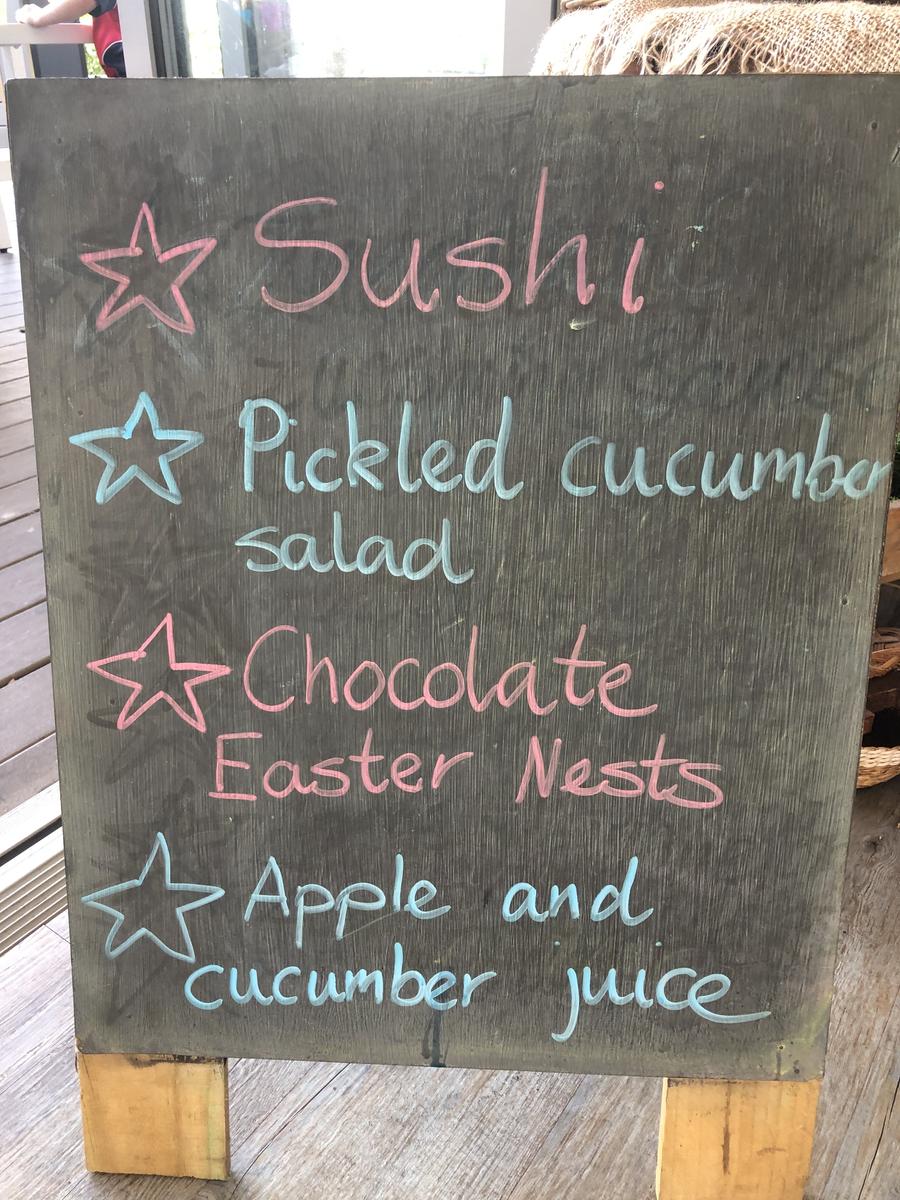 Sushi
Pickled cucumber
salad
Chocolate
Easter Nests
Apple and
cucumber juice